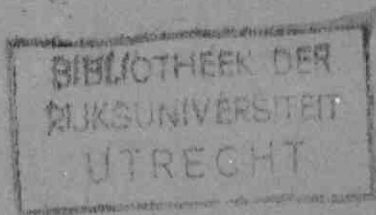 BIBLIOTHEEK DER
RIJKSUNIVERSITEIT
UTRECHT